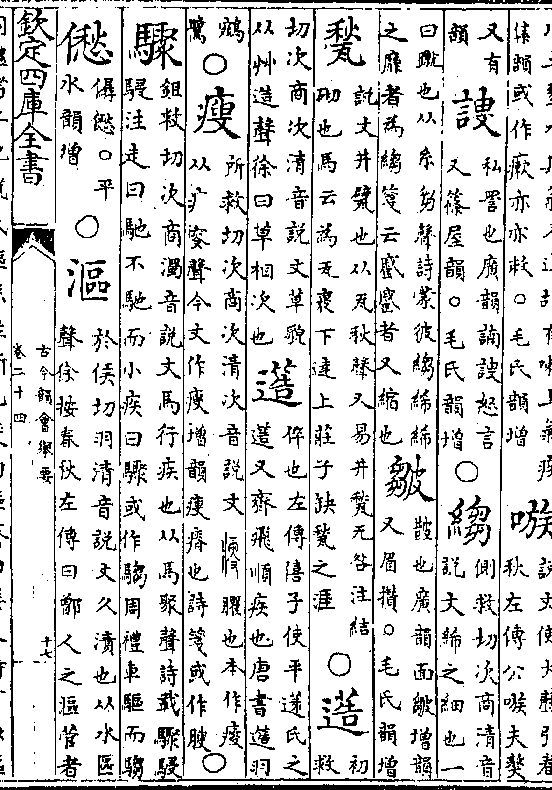 傃韻或作瘶亦亦○毛氏韻增
嗾
說文使犬聲引春
秋左傳公嗾夫獒
又有
韻
謏
私詈也廣韻詉怒言
又篠屋韻○毛氏韻增
○縐
側救切次商清音
說文絺之細也一
曰蹴也从糸芻聲詩蒙彼縐絺絺
之靡者為縐箋云蹙蹙者又縮也
皺
皵也廣韻面皺增韻
又眉攢○毛氏韻增
甃
說文井甓也从瓦秋聲又易井甃无咎注結
砌也馬云為瓦裏下達上莊子缺甃之涯
○䔏
初
救
切次商次清音說文草貌
从艸造聲徐曰草相次也
簉
倅也左傳僖子使平薳氏之
簉又齊飛順疾也唐書簉羽
鵷
鷺
○瘦
所救切次商次清次音說文臞也本作㾭
从疒叜聲今文作瘦增韻瘦瘠也詩箋或作膄○
驟
鉏救切次商濁音說文馬行疾也从馬聚聲詩載驟駸
駸注走曰馳不馳而小疾曰驟或作騶周禮車驅而騶
僽
僝僽○平
水韻增
○漚
於侯切羽清音說文久漬也从水區
聲徐按春秋左傳曰鄫人之漚菅者
欽定四庫全書
古今韻會舉要
卷二十四
十七